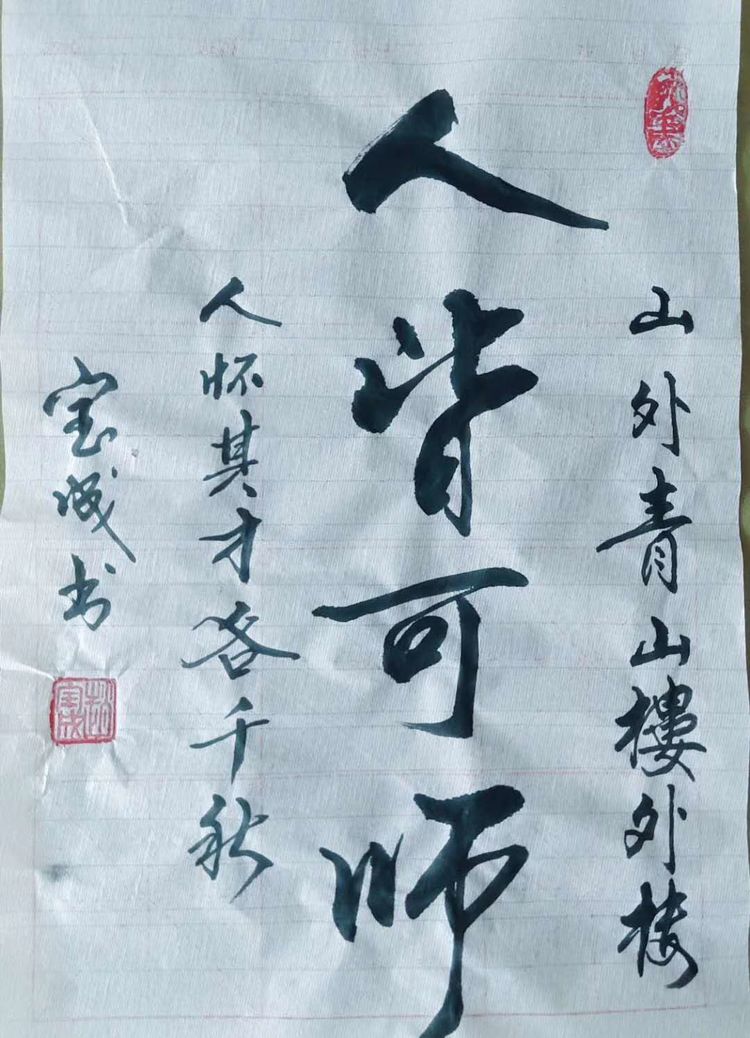 山外青山樓外楼
人皆可师
人怀其才各千秋
宝成书